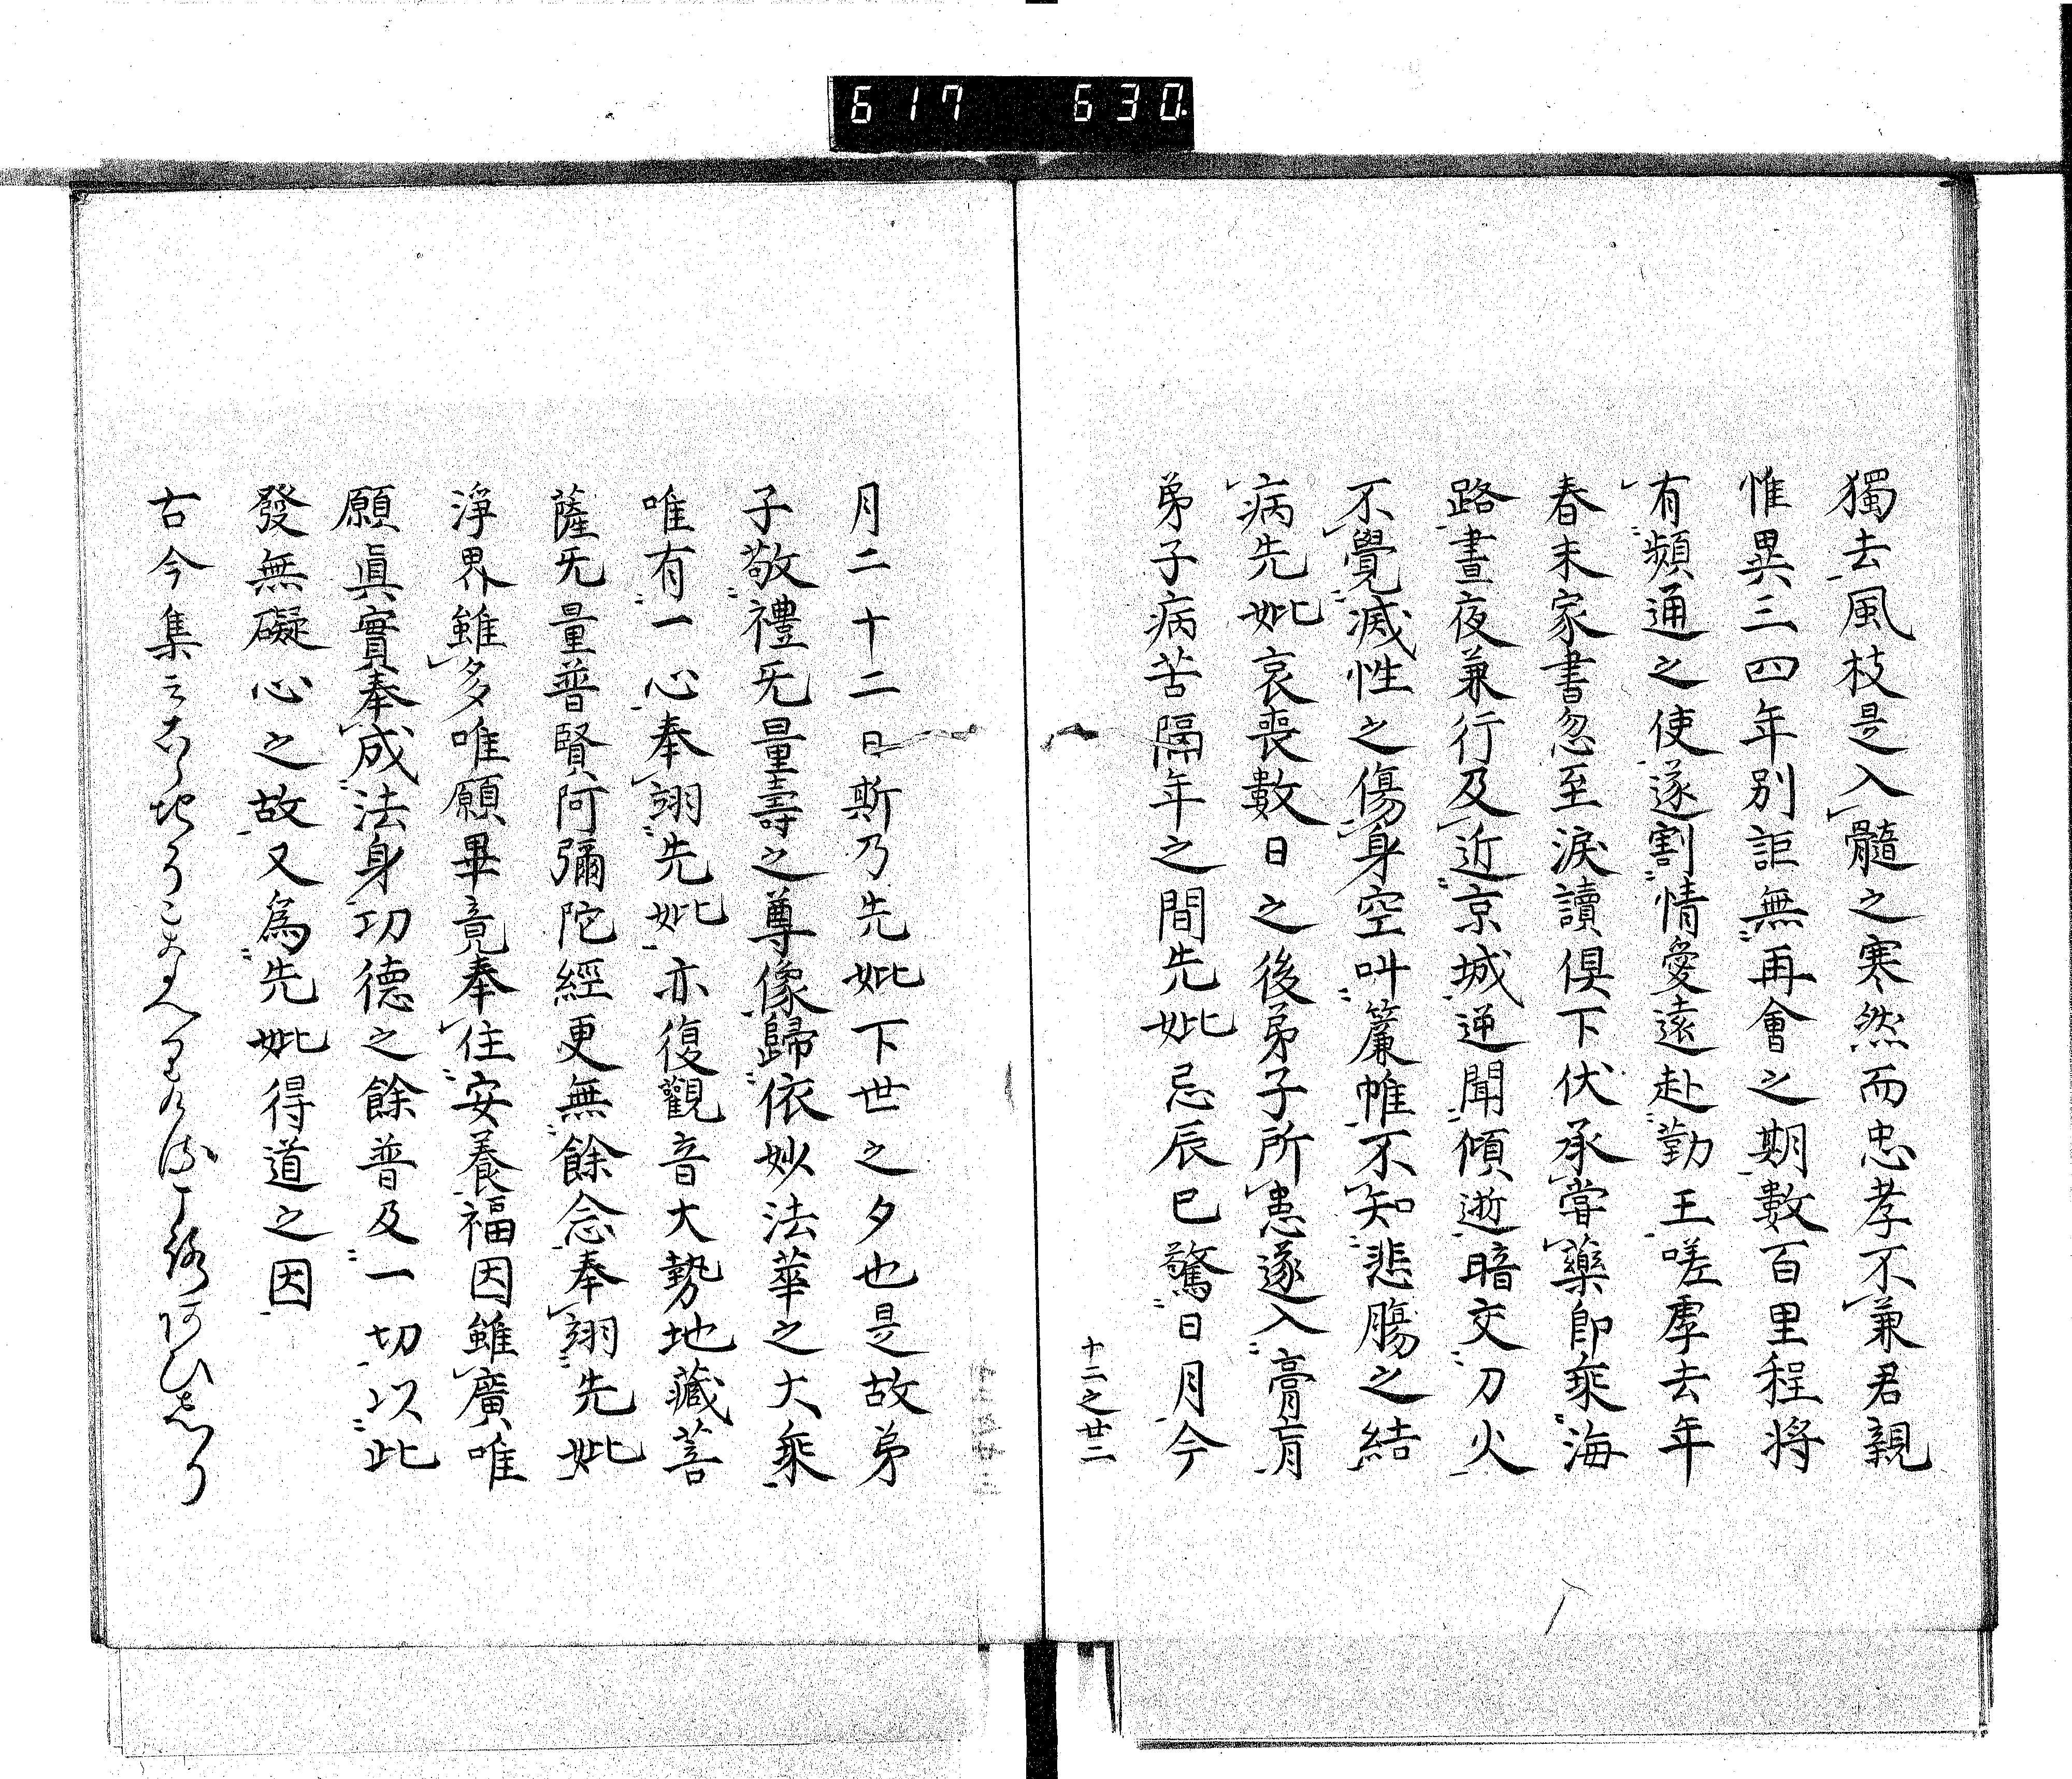 617 630
獨去風枝是入髓之寒然而忠孝不兼君親
惟異三四年別詎無再會之期數百里程将
有頻通之使遂割情愛遠赴勤王嗟虖去年
春末家書忽至淚讀倶下伏承甞藥即乘海
路晝夜兼行及近京城逆聞傾逝暗交刀火
不覺滅性之傷身空叫簾帷不知悲膓之結
病先妣哀喪數日之後弟子所患遂入膏肓
弟子病苦隔年之間先妣忌辰已驚日月今
十二之廿二
月二十二日斯乃先妣下世之夕也是故弟
子敬禮无量壽之尊像歸依妙法華之大乘
唯有一心奉翊先妣亦復觀音大勢地藏菩
薩无量普賢阿彌陀經更無餘念奉翊先妣
淨界雖多唯願畢竟奉住安養福因雖廣唯
願眞實奉成法身功德之餘普及一切以此
發無礙心之故又爲先妣得道之因
古今集云